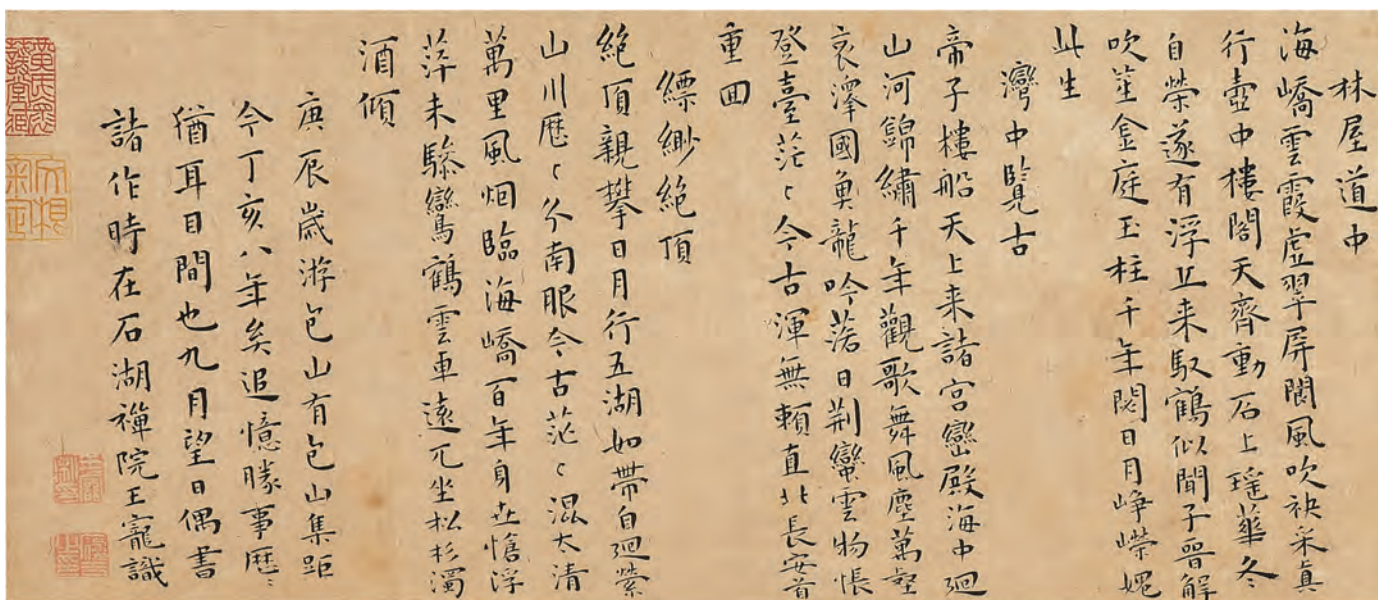 林屋道中
海嶠雲霞虛翠屏閬風吹袂采真
行壺中樓閣天齊動石上瑤華冬
自榮遂有浮丘来馭鶴似聞子晉解
吹笙金庭玉柱千年閟日月崢嶸媿
此生
灣中覽古
帝子樓船天上来諸宮巒殿海中廻
山河錦繡千年觀歌舞風塵萬壑
哀澤國魚龍吟落日荆蠻雲物悵
登臺茫〻今古渾無賴直北長安首
重回
縹緲絶頂
絶頂親攀日月行五湖如帶自廻縈
山川歷〻分南眼今古茫〻混太清
萬里風烟臨海嶠百年身世愴浮
萍未驂鸞鶴雲車遠兀坐松杉濁
酒傾
庚辰歲游包山有包山集距
今丁亥八年矣追憶勝事歷〻
猶耳目間也九月望日偶書
諸作時在石湖禪院王寵識